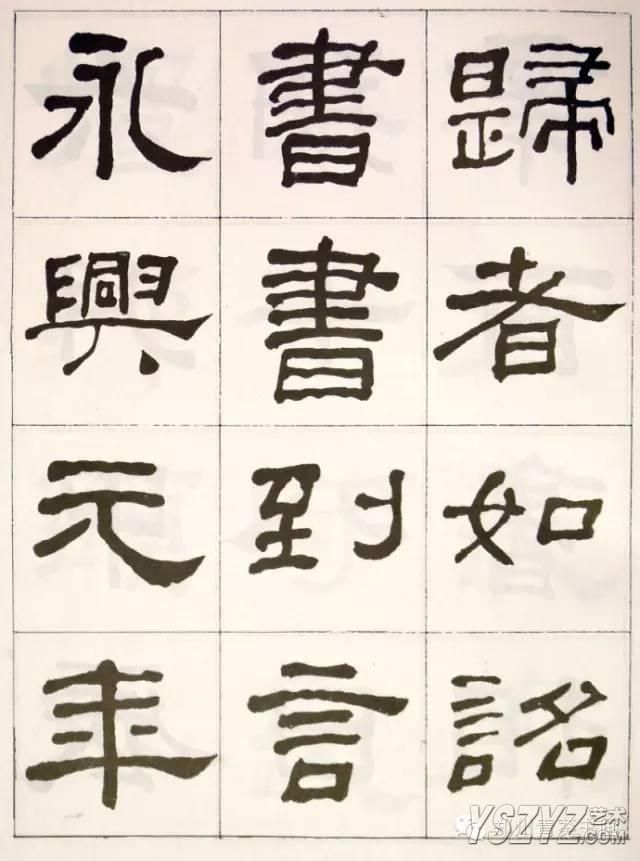 歸者如詔
書書到言
永興元年
YSZYZ艺术.com